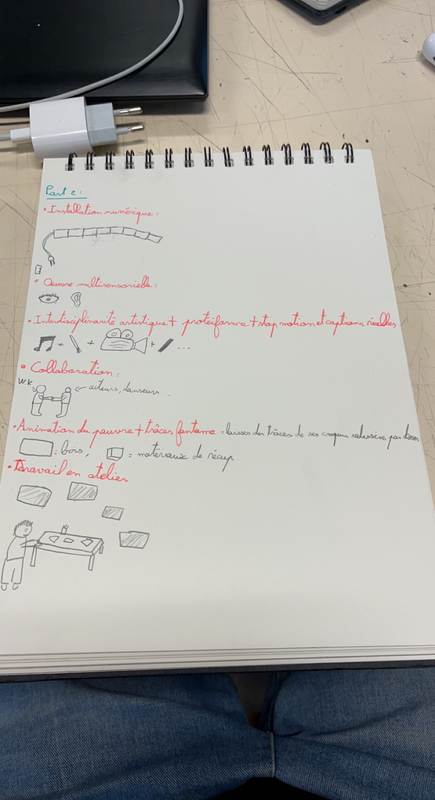 Part 2 :
• Installation numérique :
• Oeuvre multisensorielle :
• Interdisciplinarité artistique + protéiforme + stop motion et captions réelles
+ + + ...
• Collaboration :
W.K
acteurs, danseurs ...
• Animation du pauvre + trâces fantome = laisses des trâces de ses croquis redessine par dessus
= bois, = matériaux de récup
• Travail en ateliers